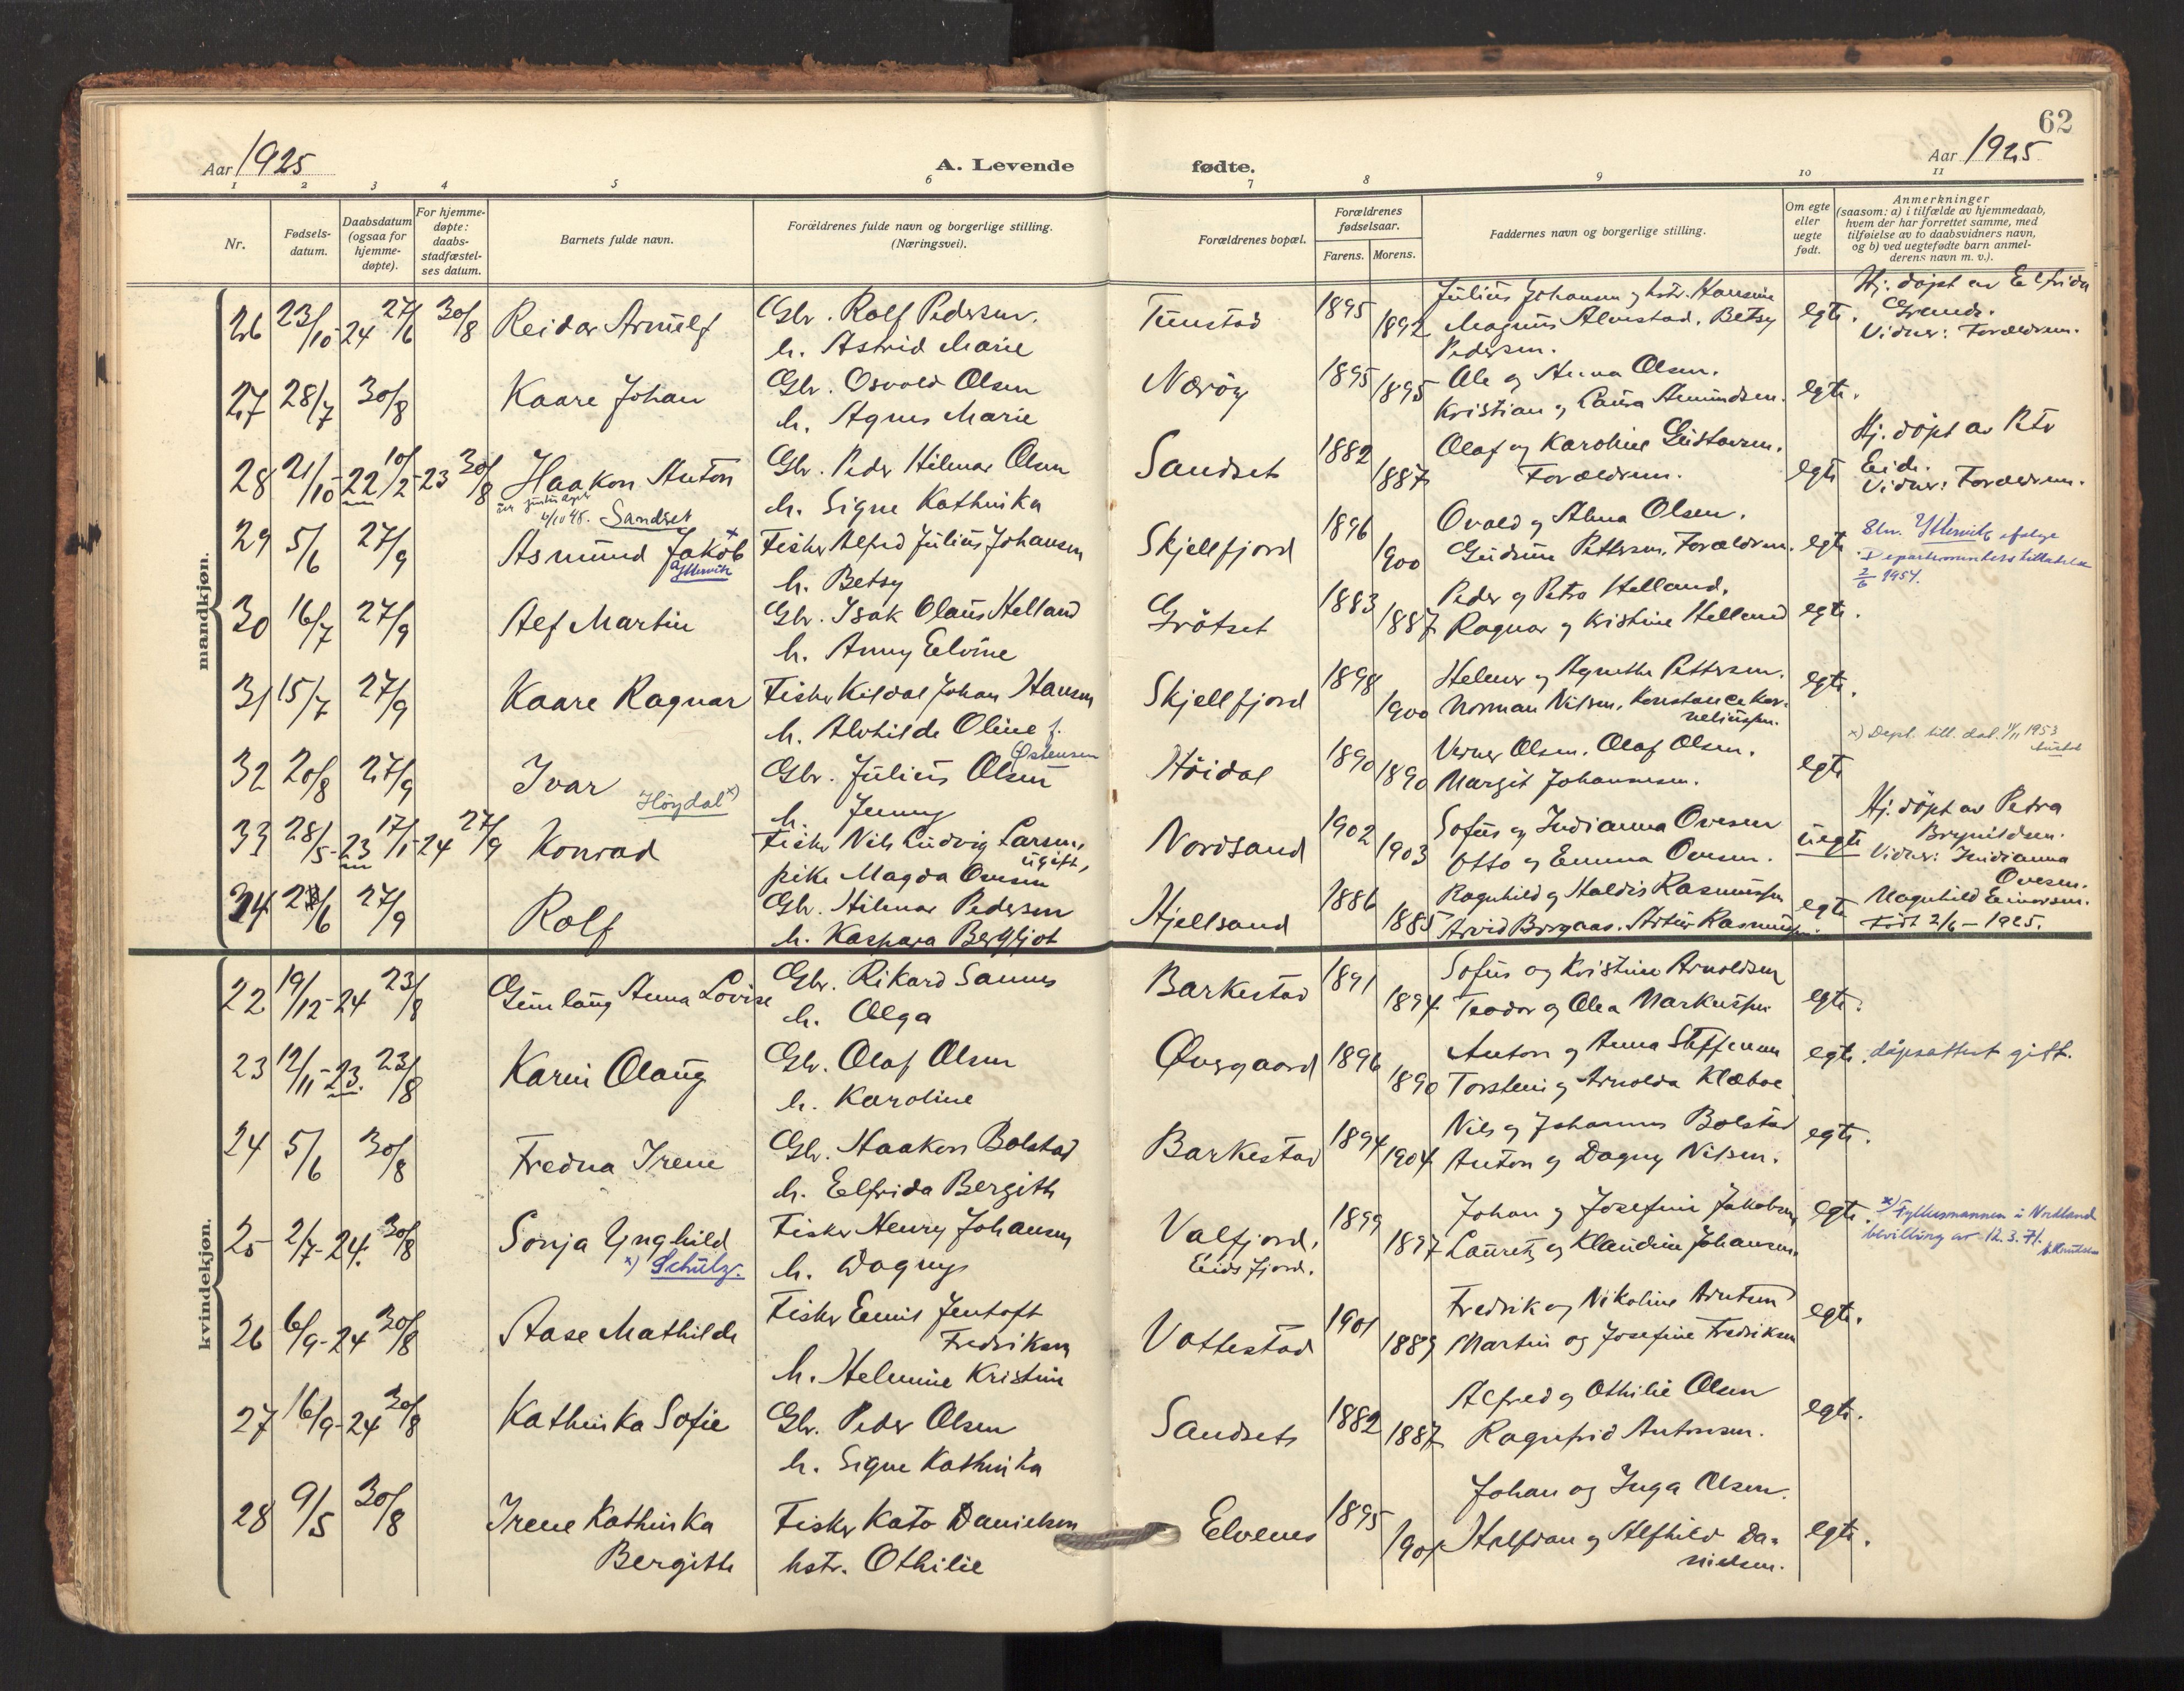 62
Aar 1925
A. Levende
fødte.
Aar 1925
1 2 3 4 5 6 7 8 9 10 11
Nr.
Fødsels-
datum.
Daabsdatum
(ogsaa for
hjemme-
døpte).
For hjemme-
døpte:
daabs-
stadfæstel-
ses datum.
Barnets fulde navn.
Forældrenes fulde navn og borgerlige stilling.
(Næringsvei).
Forældrenes bopæl.
Forældrenes
fødselsaar.
Farens. Morens.
Faddernes navn og borgerlige stilling.
Om egte
eller
uegte
født.
Anmerkninger
(saasom: a) i tilfælde av hjemmedaab,
hvem der har forrettet samme, med
tilføielse av to daabsvidners navn,
og b) ved uegtefødte barn anmel-
derens navn m. v.).
mandkjøn.
26 23/10-24 27/6 30/8 Reidar Arnulf
Gbr. Rolf Pedersen.
h. Astrid Marie
Tunstad 1895 1892
Julius Johansen og hstr. Hansine
Magnus Alvestad. Betsy
Pedersen.
egte.
Hj. døpt av Elfrida
Vidner: Forældrene.
27 28/7 30/8 Kaare Johan
Gbr. Osvald Olsen
h. Agnes Marie
Nærøy 1895 1895
Ole og Anna Olsen.
Kristian og Laura Amundsen.
egte.
28 21/10-22 10/2-23 30/8 Haakon Anton
Sandset
Gbr. Peder Hilmar Olsen
h. Signe Kathinka
Sandset 1882 1887
Olaf og Karoline Gustavsen.
Forældrene.
egte
Hj. døpt av
Eide.
Vidner: Forældrene.
29 5/6 27/9 Asmund Jakob x
Yttervik
Fisker Alfred Julius Johansen
h. Betsy
Skjellfjord 1896 1900
Ovald og Alma Olsen.
Gudrun Pettersen. Forældrene.
egte
Yttervik ifølge
Departementets tillatelse
2/6 1954.
30 16/7 27/9 Alf Martin
Gbr. Isak Olaus Helland
h. Anny Elvine
Grøtset 1883 1887
Peder og Petra Helland.
Ragnar og Kristine Helland
egte.
31 15/7 27/9 Kaare Ragnar
Fisker Kildal Johan Hansen
h. Alvhilde Oline f.
Østensen
Skjellfjord 1898 1900
Helmer og Agnethe Pettersen.
Norman Nilsen, Konstance Kor-
neliussen.
egte.
32 20/8 27/9 Ivar
Høydal x)
Gbr. Julius Olsen
h. Jenny
Høidal 1890 1890
Verner Olsen. Olaf Olsen.
Margit Johannesen.
egte
x) Dept. till. dat. 11/11 1953
33 28/5-23 17/1-24 27/9 Konrad
Fisker Nils Ludvig Larsen,
ugift,
pike Magda Ovesen
Nordsand 1902 1903
Sofus og Indianna Ovesen
Otto og Emma Ovesen.
uegte
Hj. døpt av Petra
Brynildsen.
Vidner: Indianna
Ovesen.
Magnhild Einarsen.
34 2/6 27/9 Rolf
Gbr. Hilmar Pedersen
h. Kaspara Bergljot
Hjellsand 1886 1885
Ragnhild og Haldis Rasmussen
Arvid Borgaas. Artur Rasmussen.
egte
Født 2/6 - 1925.
kvindekjøn.
22 19/12-24 23/8 Gunlaug Anna Lovise
Gbr. Rikard Sannes
h. Olga
Barkestad 1891 1894
Sofus og Kristine Arnoldsen
Teodor og Olea Markussen
egte.
23 12/11-23. 23/8 Karin Olaug
Gbr. Olaf Olsen
h. Karoline
Øvergaard 1896 1890
Anton og Anna Steffensen
Torstein og Arnolda Klæboe
egte. dåpsattest gitt.
24 5/6 30/8 Fredna Irene
Gbr. Haakon Bolstad
h. Elfrida Bergith
Barkestad 1894 1904
Nils og Johannes Bolstad
Anton og Dagny Nilsen.
egte.
25 2/7-24. 30/8 Sonja Ynghild
x) Schulz.
Fisker Henry Johansen
h. Dagny
Valfjord,
Eidsfjord.
1899 1897
Johan og Josefine Jakobsen
Lauretz og Klaudine Johansen.
egte.
x) Fylkesmannen i Nordland
bevilling av 12.3.71.
26 6/9-24 30/8 Aase Mathilde
Fisker Emil Jentoft
Fredriksen
h. Helmine Kristine
Vottestad 1901 1889
Fredrik og Nikoline Arntsen
Martin og Josefine Fredriksen
egte.
27 16/9-24 30/8 Kathinka Sofie
Gbr. Peder Olsen
h. Signe Kathinka
Sandsets 1882 1887
Alfred og Othilie Olsen
Ragnfrid Antonsen.
egte.
28 9/5 30/8 Irene Kathinka
Bergith
Fisker Kato Danielsen
hstr. Othilie
Elvenes 1895 1901
Johan og Inga Olsen.
Halfdan og Alfhild Da-
nielsen.
egte.